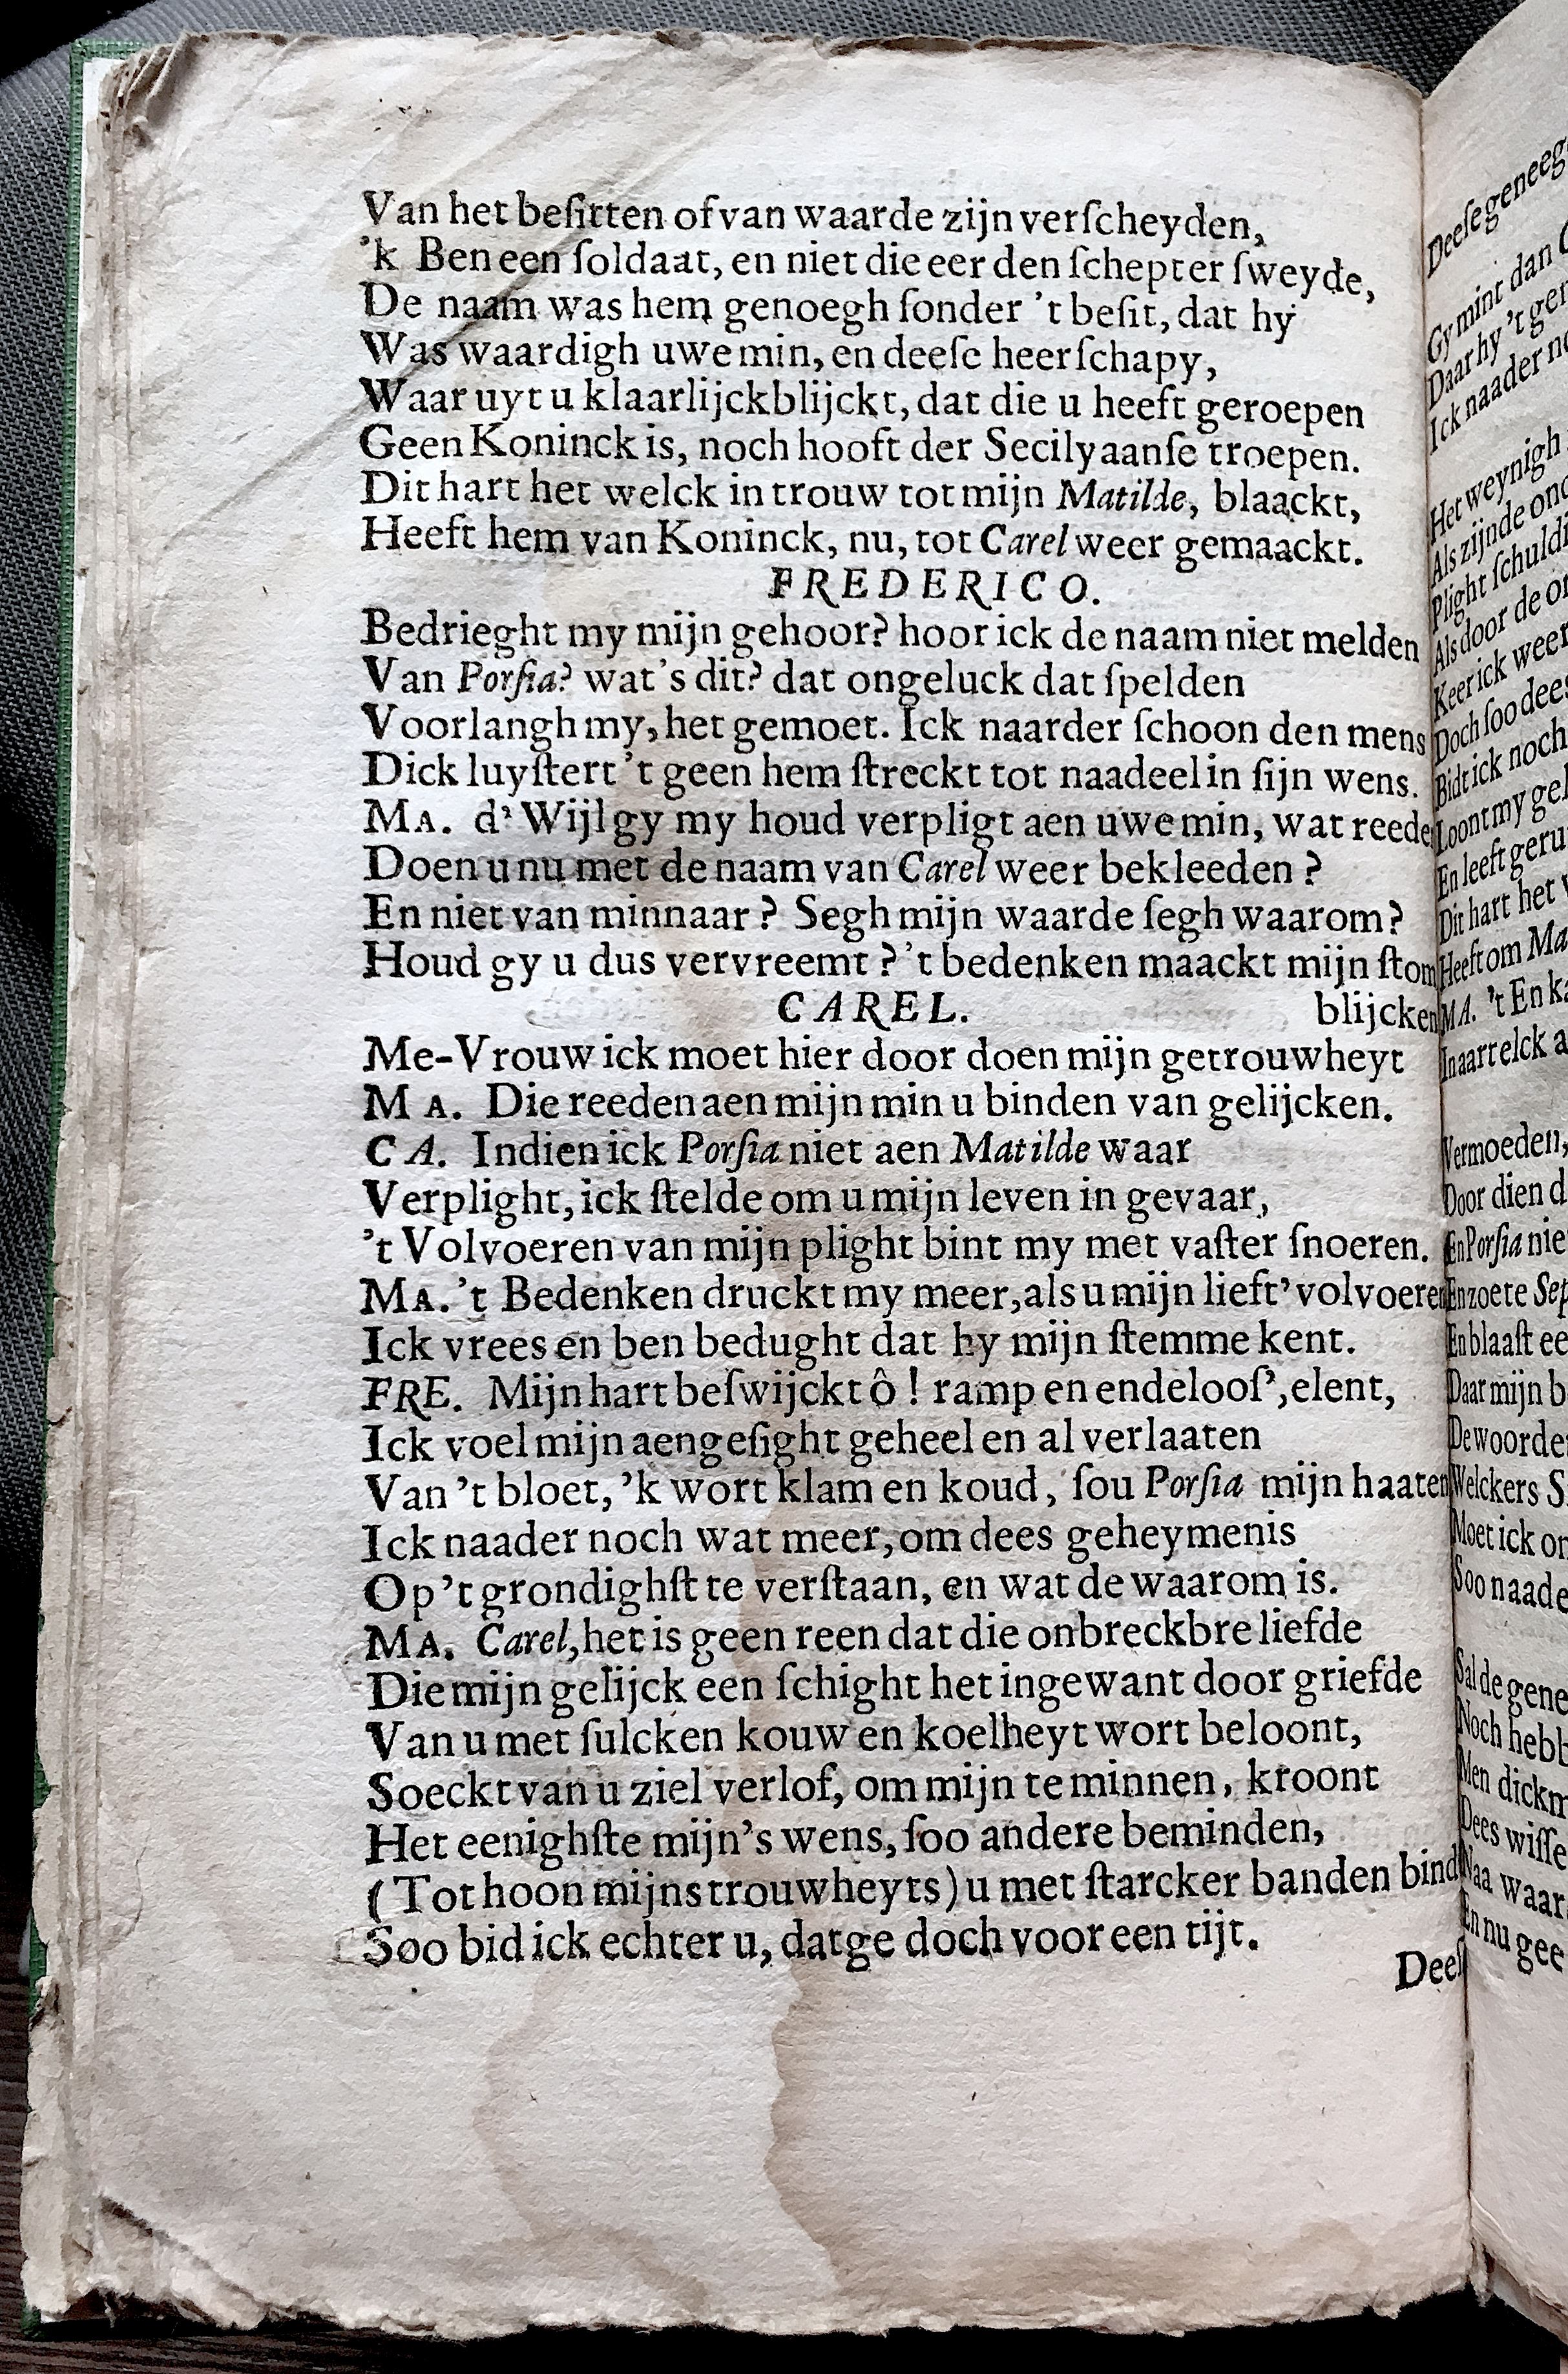 Van het beſitten of van waarde zijn verſcheyden,
’k Ben een ſoldaat, en niet die eer den ſchepter ſweyde,
De naam was hem genoegh ſonder ’t beſit, dat hy
Was waardigh uwe min, en deeſe heerſchapy,
Waar uyt u klaarlijck blijckt, dat die u heeft geroepen
Geen Koninck is, noch hooft der Secilyaanſe troepen.
Dit hart het welck in trouw tot mijn Matilde, blaackt,
Heeft hem van Koninck, nu, tot Carel weer gemaackt.
FREDERICO.
Bedrieght my mijn gehoor? hoor ick de naam niet melden
Van Porſia? wat’s dit? dat ongeluck dat ſpelden
Voorlangh my, het gemoet. Ick naarder ſchoon den mens
Dick luyſtert ’t geen hem ſtreckt tot naadeel in ſijn wens.
MA. d’Wijl gy my houd verpligt aen uwe min, wat reede
Doen u nu met de naam van Carel weer bekleeden?
En niet van minnaar? Segh mijn waarde ſegh waarom?
Houd gy u dus vervreemt? ’t bedenken maackt mijn ſtom
CAREL. blijcken
Me-Vrouw ick moet hier door doen mijn getrouwheyt
MA. Die reeden aen mijn min u binden van gelijcken.
CA. Indien ick Porſia niet aen Matilde waar
Verplight, ick ſtelde om u mijn leven in gevaar,
’t Volvoeren van mijn plight bint my met vaſter ſnoeren.
MA. ’t Bedenken druckt my meer, als u mijn lieft’ volvoeren
Ick vrees en ben bedught dat hy mijn ſtemme kent.
FRE. Mijn hart beſwijckt ô! ramp en endelooſ’, elent,
Ick voel mijn aengeſight geheel en al verlaaten
Van ’t bloet, ’k wort klam en koud, ſou Porſia mijn haaten
Ick naader noch wat meer, om dees geheymenis
Op ’t grondighſt te verſtaan, en wat de waarom is.
MA. Carel, het is geen reen dat die onbreckbre liefde
Die mijn gelijck een ſchight het ingewant door griefde
Van u met ſulcken kouw en koelheyt wort beloont,
Soeckt van u ziel verlof, om mijn te minnen, kroont
Het eenighſte mijn’s wens, ſoo andere beminden,
(Tot hoon mijns trouwheyts) u met ſtarcker banden bind
Soo bid ick echter u, dat ge doch voor een tijt.
Deeſ

Deeſe geneeg
Gy mint dan
Daar hy ’t
Ick naader
Het weynigh
Als zijnde
Plight
Als door de
Keer ick weer
Doch ſoo dees
Bidt ick noch
Loont my
En leeft
Dit hart het
Heeft om
MA. ’t En
In aart elck
Vermoeden,
Door dien
En Porſia
En zoete
En blaaſt
Daar mijn
De
Welckers
Moet ick
Soo
Sal de
Noch
Men
Dees
Naa waar
En nu